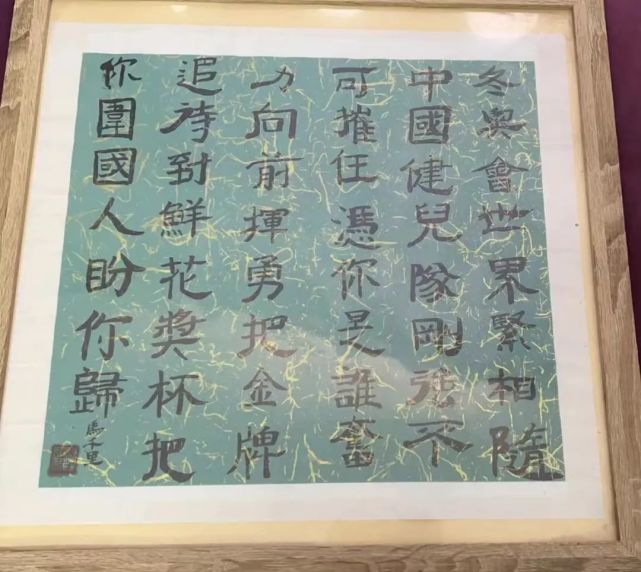 冬奥會世界緊相隨
中國健兒隊剛强不
可摧任憑你是誰奮
力向前揮勇把金牌
追待到鮮花獎杯把
你圍國人盼你歸
馬千里